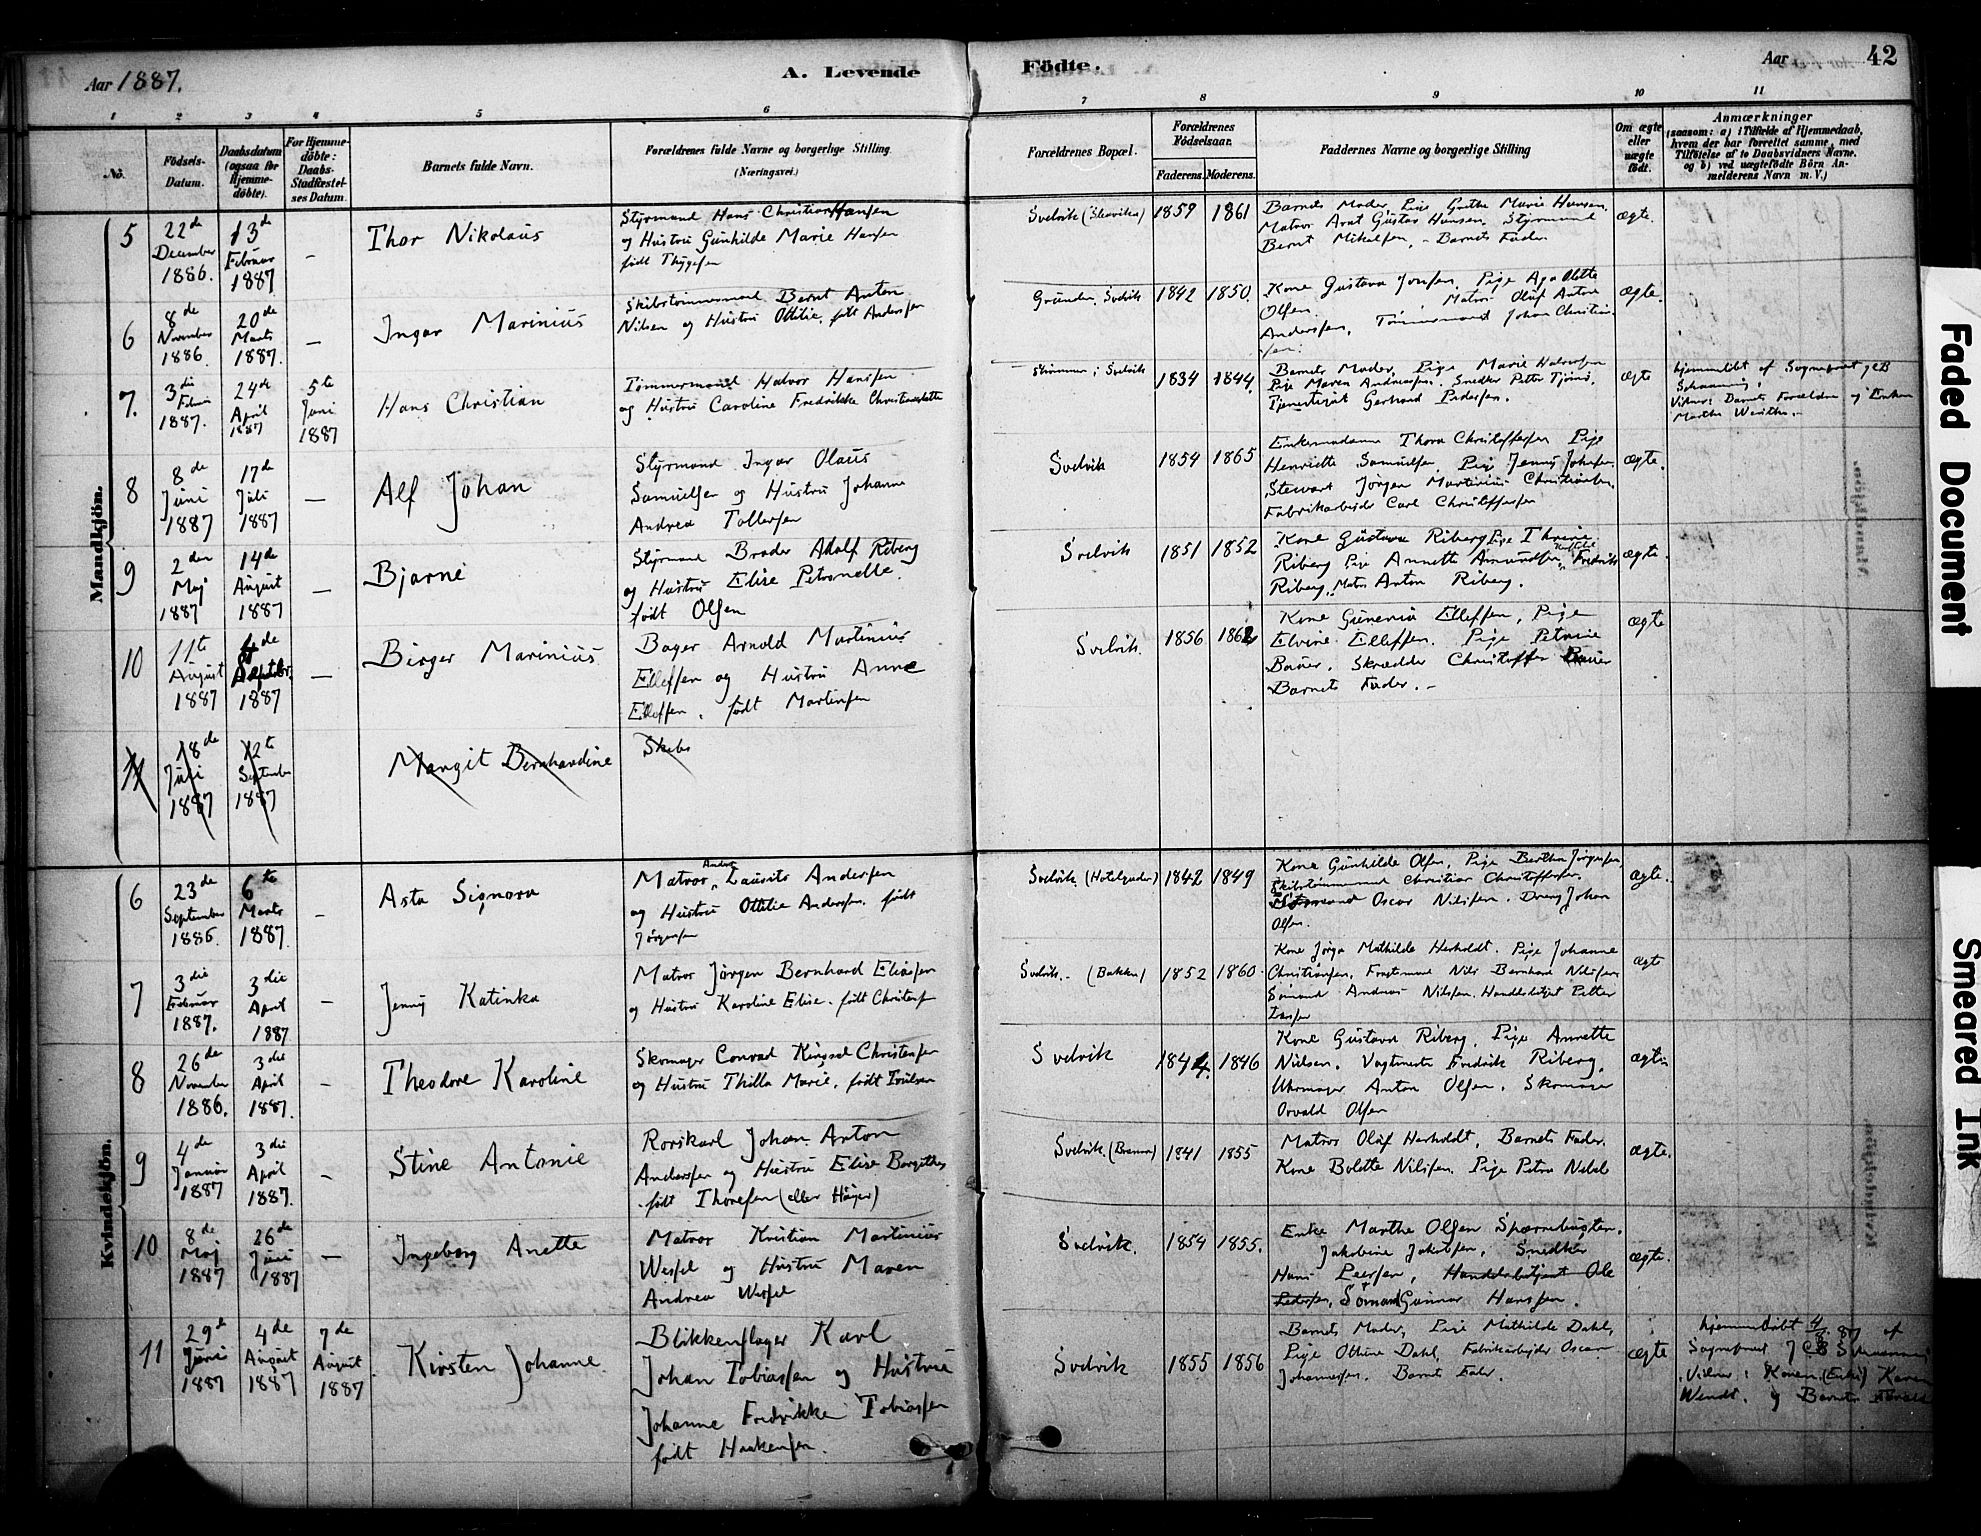 Aar 1887.
A. Levende Födte.
Aar 42
1 2 3 4 5 6 7 8 9 10 11
No.
Födsels-Datum.
Daabsdatum (ogsaa for Hjemme-döbte).
For Hjemme-döbte: Daabs-Stadfæstel-ses Datum.
Barnets fulde Navn.
Forældrenes fulde Navne og borgerlige Stilling
(Næringsvei.)
Forældrenes Bopæl.
Forældrenes Födselsaar.
Faderens. Moderens.
Faddernes Navne og borgerlige Stilling
Om ægte eller uægte födt.
Anmærkninger
(saasom: a) i Tilfælde af Hjemmedaab,
hvem der har forrettet samme, med
Tilföielse af to Daabsvidners Navne,
og b) ved uægtefödte Börn An-
melderens Navn m. V.)
Mandkjön.
5 22de December 1886. 13de Februar 1887 -
Thor Nikolaus
Styrmand Hans Christian Hansen
og Hustru Gunhilde Marie Hansen
født Thygesen
Svelvik 1859 1861
Barnets Moder, Pige Grethe Marie Hansen,
Matros Arnt Gustav Hansen, Styrmand
Bernt Mikalsen, - Barnets Fader
ægte.
6 8de November 1886. 20de Marts 1887. -
Ingar Marinius
Skibstømmermand Bernt Anton
Nilsen og Hustru Ottilie, født Andersen
Grunden, Svelvik 1842 1850.
Kone Gustava Jonsen, Pige Aga Olette
Olsen, Matros Oluf Anton
Andersen, Tømmermand Johan Christian-
sen.
Ægte.
7. 3die Febru 1887. 24de April 1887 5te Juni 1887
Hans Christian
Tømmermand Halvor Hansen
og Hustru Caroline Fredrikke
Svelvik 1834 1844
Barnets Moder, Pige Marie Halvorsen
Pige Maren Andreassen. Snedker Petter
Gerhard Pedersen.
Ægte
hjemmedøbt af Sogneprest
Vidner: Barnets Forældre og Enken
Marthe
8 8de Juni 1887 17de Juli 1887 -
Alf Johan
Styrmand Ingar Olaus
Samuelsen og Hustru Johanne
Andrea Tollersen
Svelvik 1854 1865
Enkemadame Thora Christoffersen Pige
Henriette Samuelsen, Pige Jenny Johansen,
Stewart Jørgen Martinius Christiansen,
Fabrikarbejder Carl Christoffersen
Ægte.
9 2den Maj 1887 14de August 1887 -
Bjarne
Styrmand Broder Adolf Riberg
og Hustru Elise Petronelle.
født Olsen
Svelvik 1851 1852
Kone Gustava Riberg Pige Thrine
Riberg Pige Annette Amundsen, Fredrik
Riberg, Matros Anton Riberg.
ægte.
10 11te August 1887 4de Septbr. 1887 -
Birger Marinius
Bager Arnold Martinius
Ellefsen og Hustru Anne
Ellefsen, født Martinsen
Svelvik. 1856 1862
Kone Guneria Ellefsen, Pige
Elvine Ellefsen. Pige Petrine
Bauer, Skrædder Christoffer Bauer
Barnets Fader. -
ægte
11 18de Juni 1887 12te September 1887
Margit Bernhardine
Skibs
Kvindekjön.
6 23de September 1886. 6te Marts 1887. -
Asta Signora
Matros, Lauritz Andersen
og Hustru Ottilie Andersen, født
Jørgensen
Svelvik. 1842 1849
Kone Gunhilde Olsen, Pige Berthe Jørgensen,
Skibstømmermand Christian Christoffersen,
Oscar Nilsen. Dreng Johan
Olsen.
ægte.
7 3die Februar 1887. 3die April 1887 -
Jenny Katinka
Matros Jörgen Bernhard Eliassen
og Hustru Karoline Elise. født
Svelvik. - (Bakken) 1852 1860.
Kone Mathilde Herholdt. Pige Johanne
Christiansen, Nils Bernhard Nilsen
Sömand Andreas Nilsen. Handelsbetjent Petter
Larsen
ægte
8 26de November 1886. 3die April 1887. -
Theodore Karoline
Skomager Conrad Christensen
og Hustru Thilla Marie, født
Svelvik 1844. 1846
Kone Gustava Riberg, Pige Annette
Nielsen. Vagtmester Fredrik Riberg,
Uhrmager Anton Olsen, Skomager
Osvald Olsen
ægte.
9 4de Januar 1887 3die April 1887. -
Stine Antonie
Rorskarl Johan Anton
Andersen og Hustru Elise
født Thoresen (eller Höyer)
Svelvik. 1841 1855
Matros Oluf Herholdt, Barnets Fader.
Kone Bolette Nilsen. Pige Petra
ægte.
10 8de Maj 1887 26de Juni 1887 -
Ingeborg Anette
Matros Kristian Martinius
Wessel og Hustru Maren
Andrea Wessel
Svelvik. 1854 1855.
Enke Marthe Olsen
Jakobine Jakobsen, Snedker
Hans Peersen, Handelsbetjent Ole
Pedersen, Sömand Gunnar Hansen.
ægte.
11 29de Juni 1887 4de August 1887 7de August 1887
Kirsten Johanne
Blikkenslager Karl
Johan Tobiassen og Hustru
Johanne Fredrikke Tobiassen
født Haakensen.
Svelvik 1855 1856
Barnets Moder, Pige Mathilde Dahl,
Pige Othine Dahl, Fabrikarbejder Oscar
Johannesen. Barnets Fader.
ægte
hjemmedöbt 4/8 87 af
Sogneprest
Vidner: Konen (Enke) Karen
Wendt. og Barnets
Faded Document
Smeared Ink